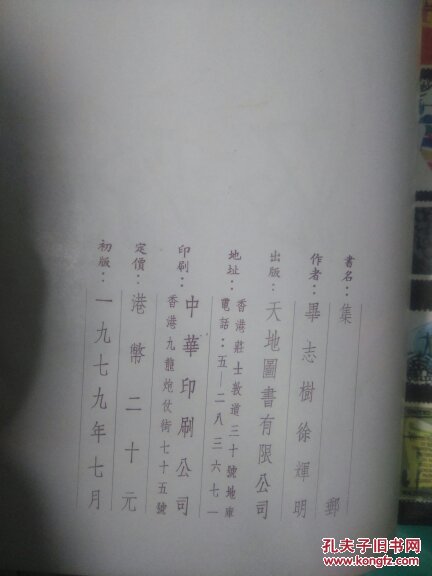 書名：集郵
作者：畢志樹徐輝明
出版：天地圖書有限公司
地址：香港莊士敦道三十號地庫
電話：五—二八三六七一
印刷：中華印刷公司
香港九龍炮仗街七十五號
定價：港幣二十元
初版：一九七九年七月
孔夫子旧书网
www.kongfz.com